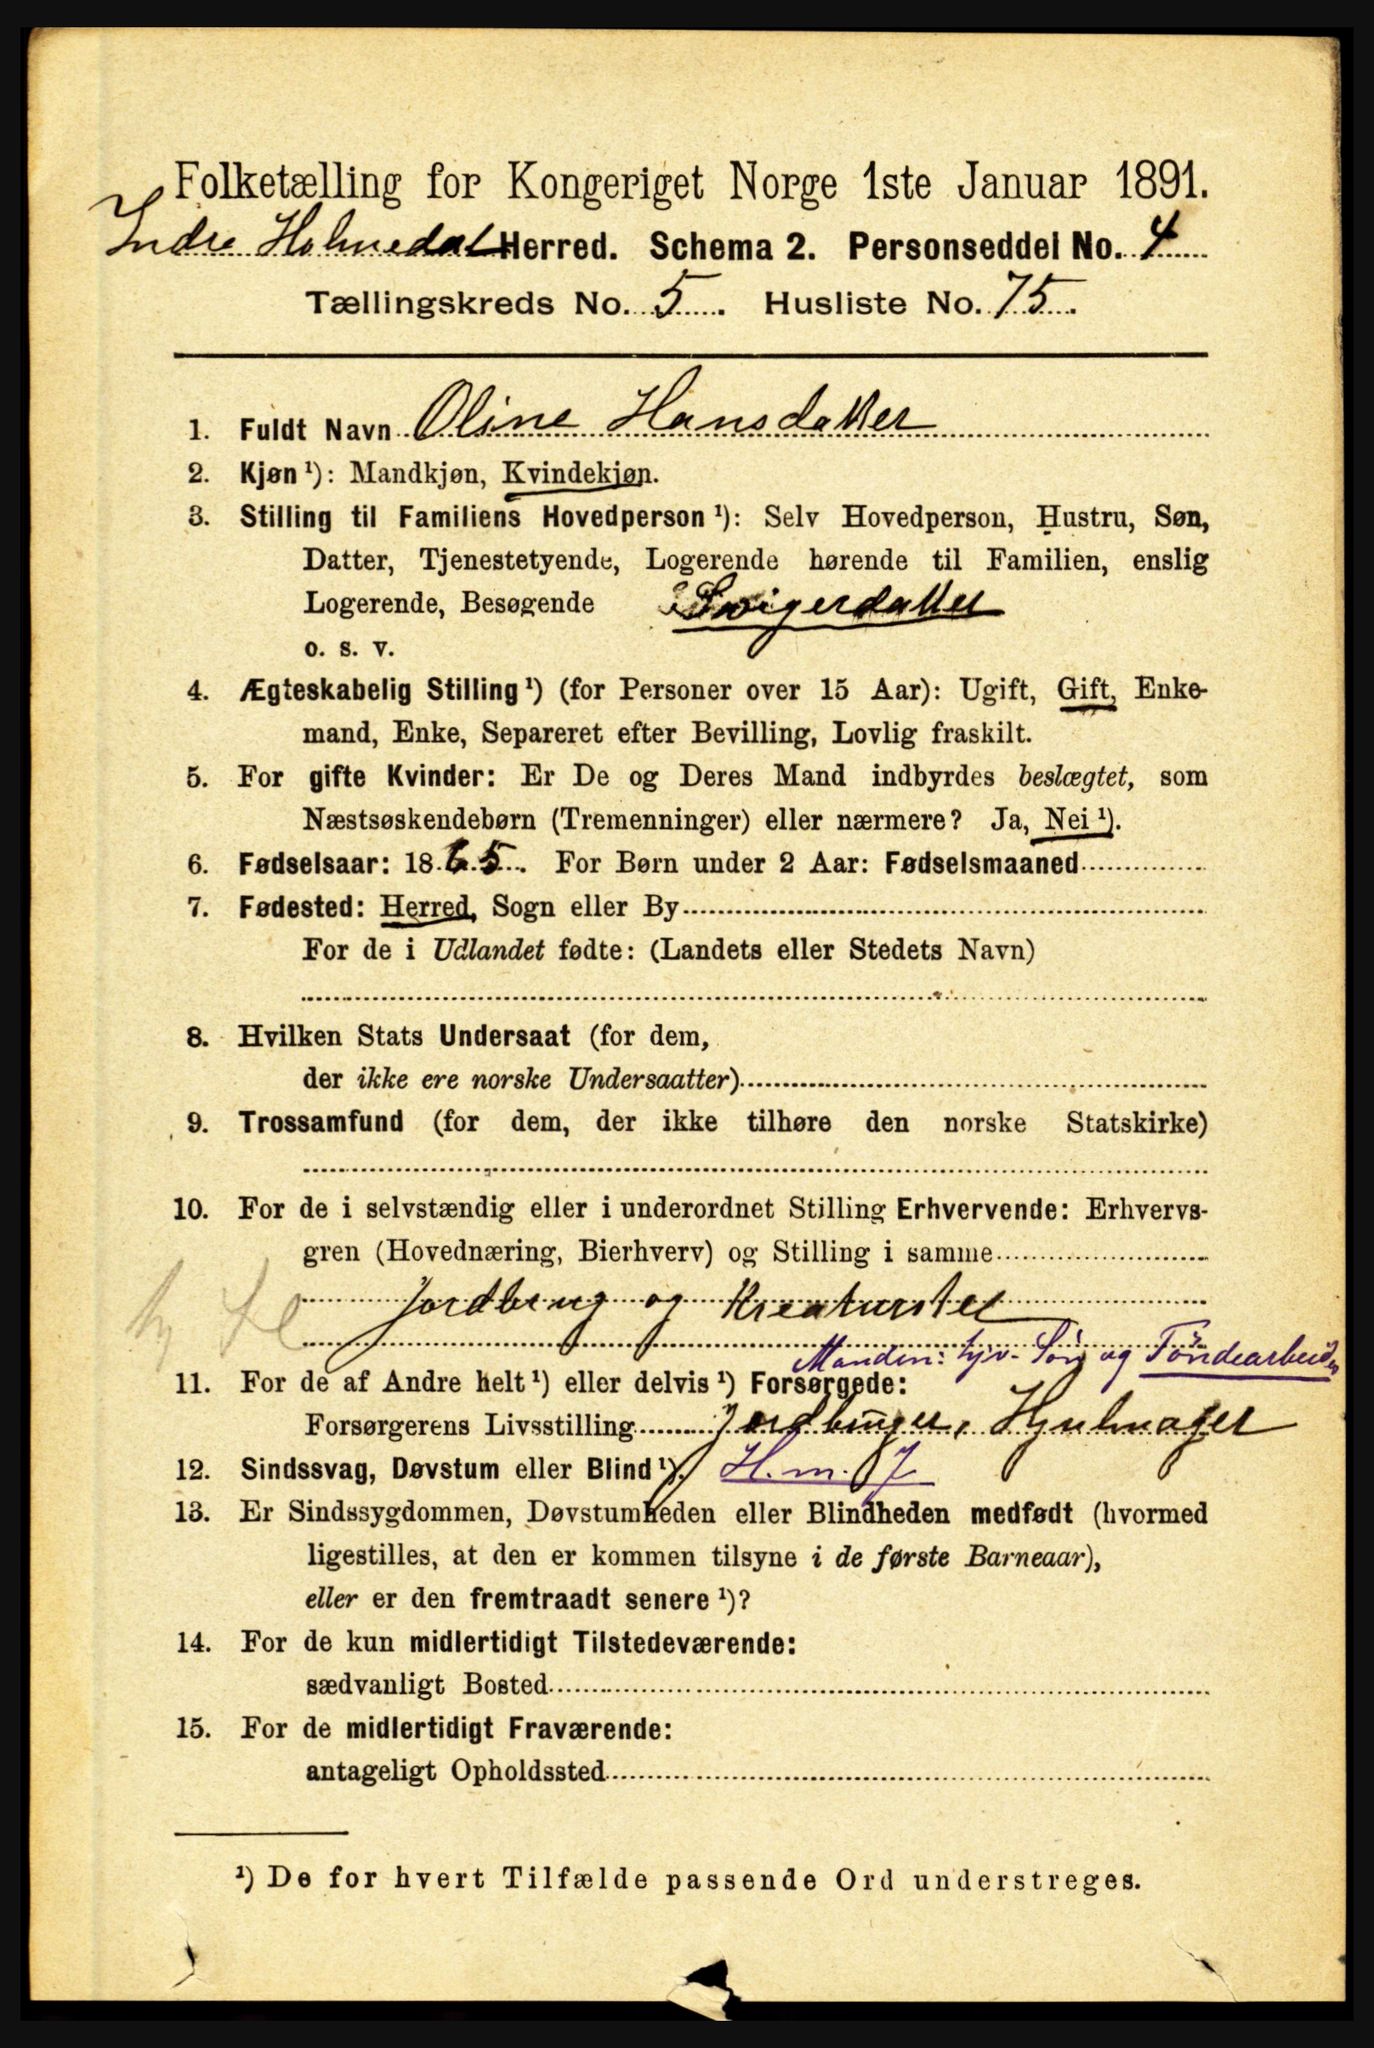 Folketælling for Kongeriget Norge 1ste Januar 1891.
Indre Holmedal Herred. Schema 2. Personseddel No. 4
Tællingskreds No. 5. Husliste No. 75.
1. Fuldt Navn Oline Hansdatter
2. Kjøn ¹): Mandkjøn, Kvindekjøn.
3. Stilling til Familiens Hovedperson ¹): Selv Hovedperson, Hustru, Søn,
Datter, Tjenestetyende, Logerende hørende til Familien, enslig
Logerende, Besøgende Svigerdatter
o. s. v.
4. Ægteskabelig Stilling ¹) (for Personer over 15 Aar): Ugift, Gift, Enke-
mand, Enke, Separeret efter Bevilling, Lovlig fraskilt.
5. For gifte Kvinder: Er De og Deres Mand indbyrdes beslægtet, som
Næstsøskendebørn (Tremenninger) eller nærmere? Ja, Nei ¹).
6. Fødselsaar: 1865. For Børn under 2 Aar: Fødselsmaaned
7. Fødested: Herred, Sogn eller By
For de i Udlandet fødte: (Landets eller Stedets Navn)
8. Hvilken Stats Undersaat (for dem,
der ikke ere norske Undersaatter)
9. Trossamfund (for dem, der ikke tilhøre den norske Statskirke)
10. For de i selvstændig eller i underordnet Stilling Erhvervende: Erhvervs-
gren (Hovednæring, Bierhverv) og Stilling i samme
Jordbrug og Kreaturstel
Manden: hjv. Søn og Tøndearbeider
11. For de af Andre helt ¹) eller delvis ¹) Forsørgede:
Forsørgerens Livsstilling Jordbruger, Hjulmager
12. Sindssvag, Døvstum eller Blind ¹). H. m.
13. Er Sindssygdommen, Døvstumheden eller Blindheden medfødt (hvormed
ligestilles, at den er kommen tilsyne i de første Barneaar),
eller er den fremtraadt senere ¹)?
14. For de kun midlertidigt Tilstedeværende:
sædvanligt Bosted
15. For de midlertidigt Fraværende:
antageligt Opholdssted
¹) De for hvert Tilfælde passende Ord understreges.